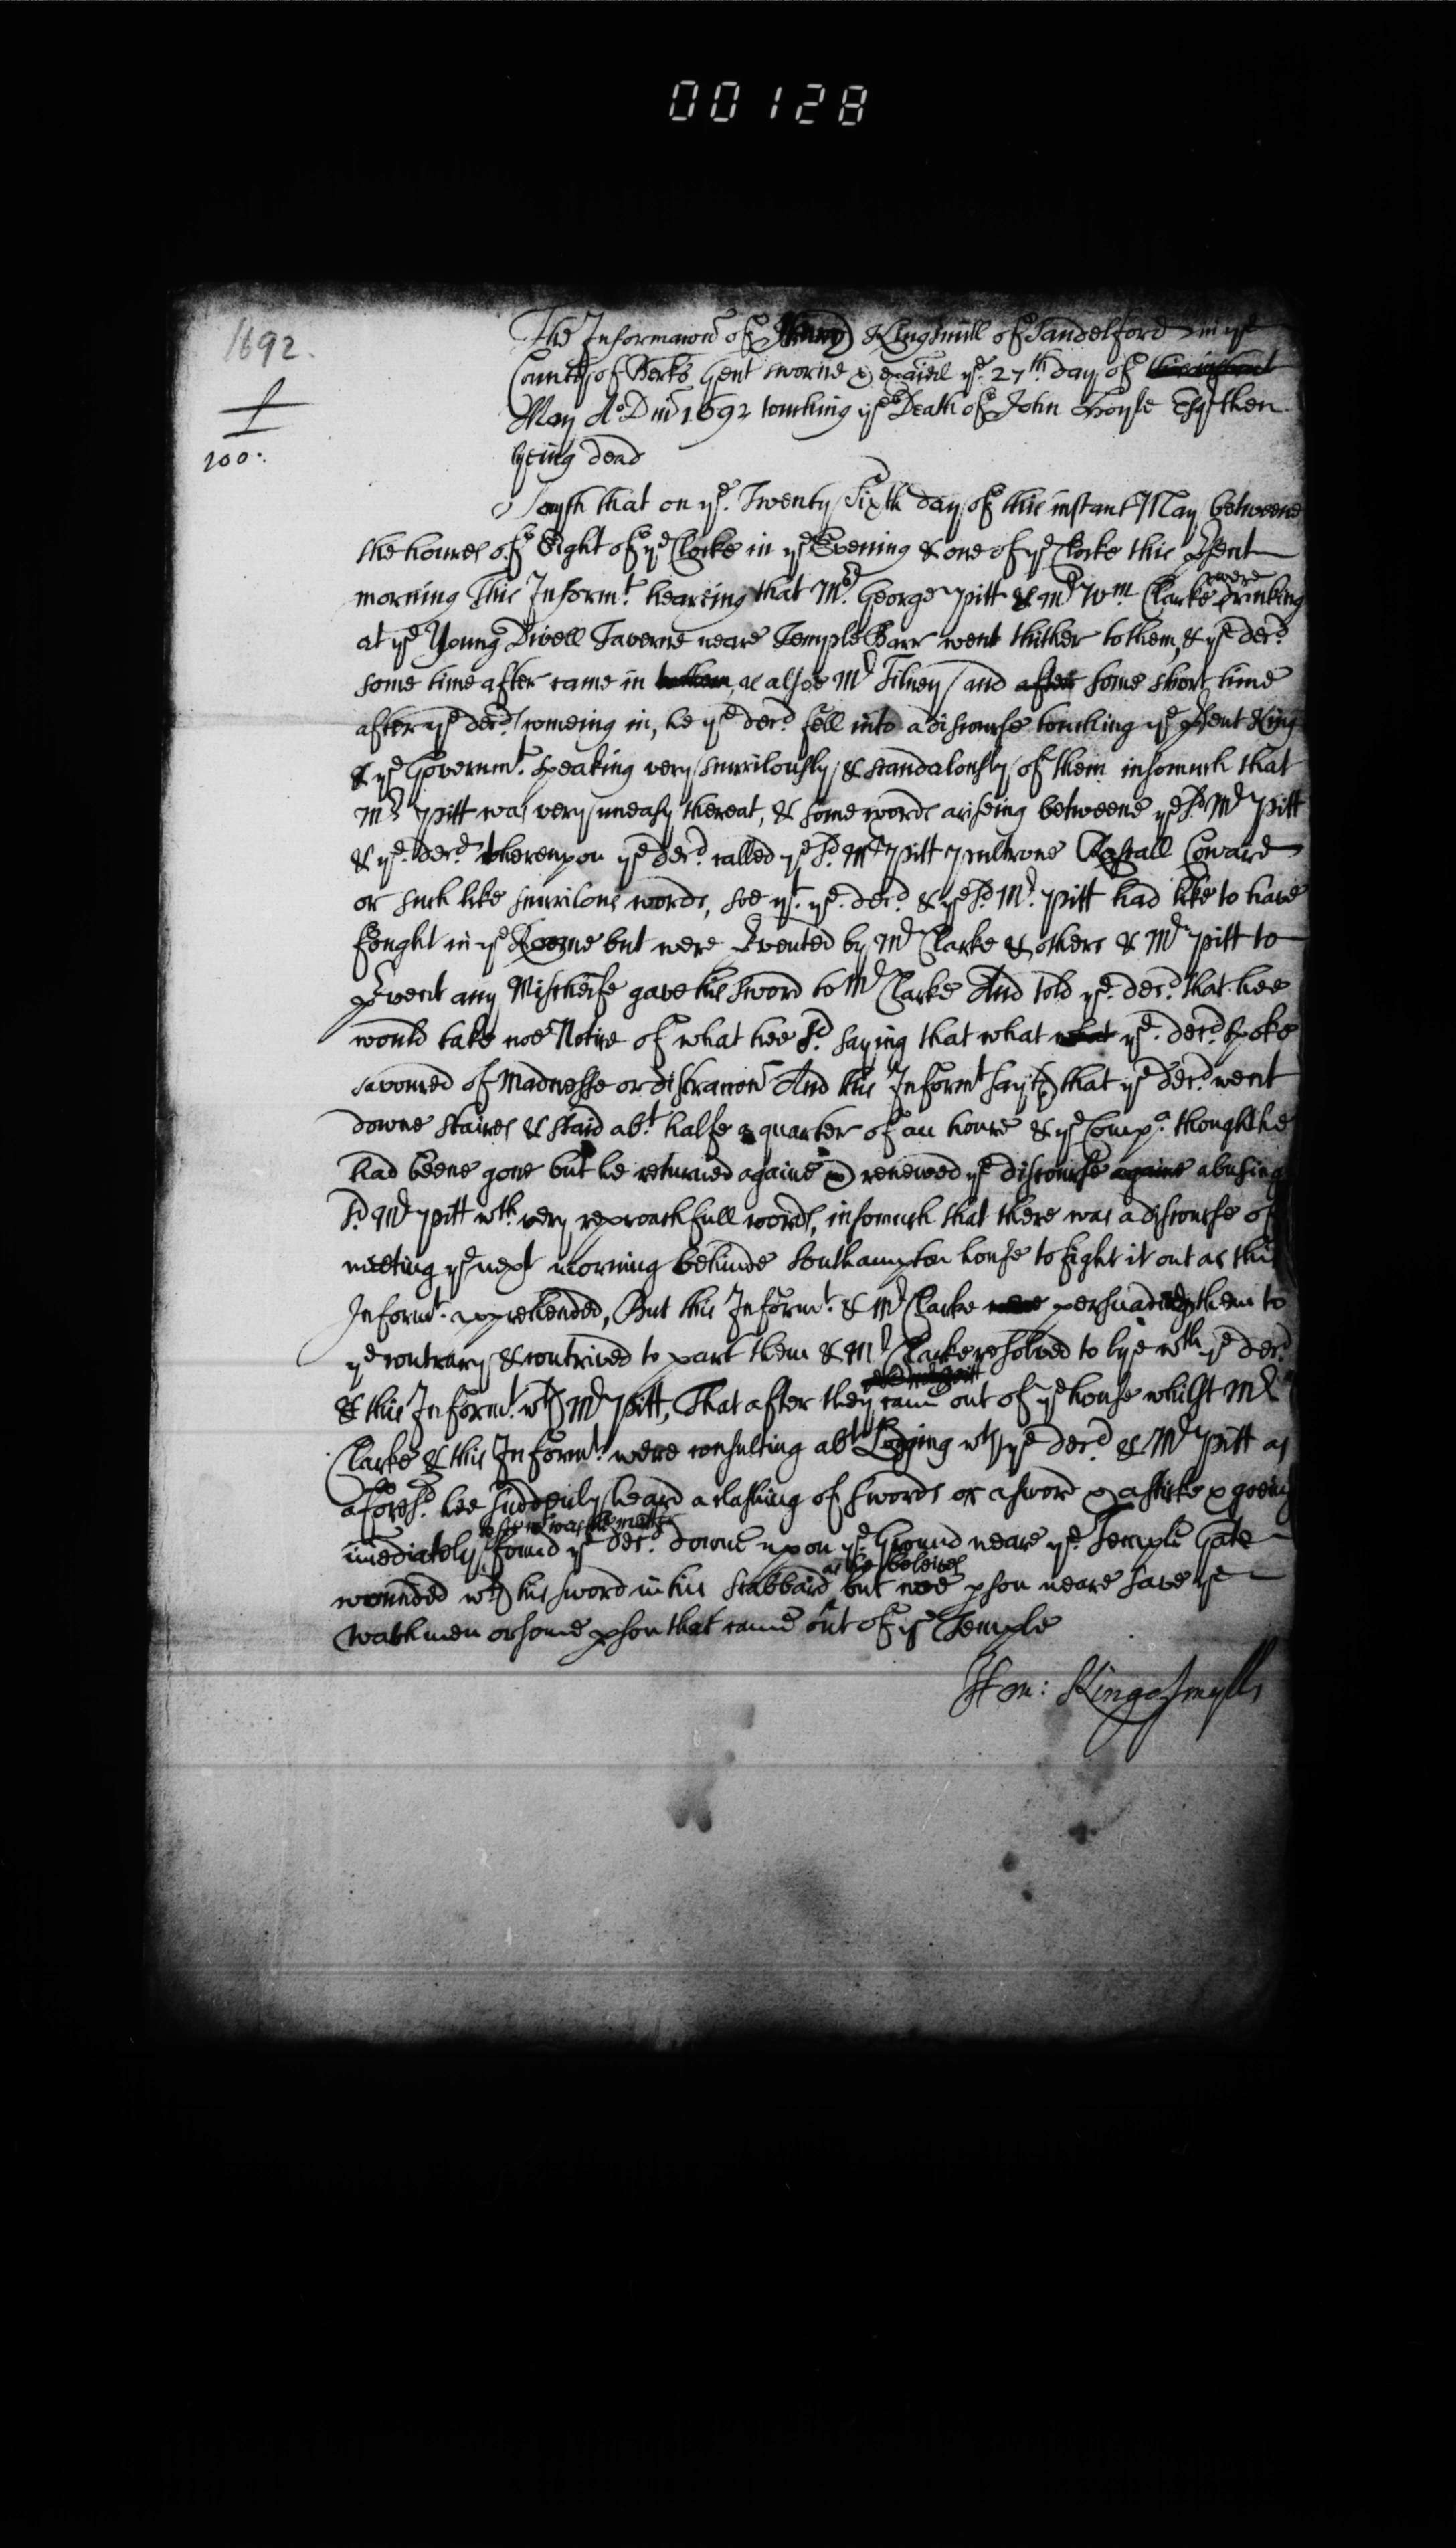 00128
1692.
100.
The Informacon of Henry Kingsmill of Sandelford in ye
County of Berks Gent sworne & exaied ye. 27th. day of this instant
May Ao. Dni 1692 touching ye Death of John Hoyle Esqr then
lyeing dead
Sayth that on ye. Twenty Sixth day of this instant May betweene
the houres of Eight of ye Clocke in ye Evening & one of ye Clocke this psent
morning This Informt. heareing that Mr. George Pitt & Mr Wm. Clarke were drinking
at ye Young Divell Taverne neare Temple Barr went thither to them, & ye decd.
some time after came in , as alsoe Mr Tilney and after some short time
after ye decd. comeing in, he ye decd. fell into a discourse touching ye psent King
& ye Governmt. speaking very scurrilously & scandalously of them insomuch that
Mr Pitt was very uneasy thereat, & some words ariseing betweene ye sd. Mr Pitt
& ye. decd. thereupon ye decd. called ye sd. Mr Pitt Pultrone Rastall Coward
or such like scurrilous words, soe yt. ye. decd. & ye sd. Mr. Pitt had like to have
fought in ye Roome but were prvented by Mr Clarke & others & Mr Pitt to
prvent any Mischeife gave his sword to Mr Clarke And told ye. decd. that hee
would take noe Notice of what hee sd. saying that what what ye. decd. spoke
savoured of Madnesse or distraccon And this Informt sayth that ye decd. went
downe staires & staid abt. halfe a quarter of an houre & ye Compa. thought he
had beene gone but he returned againe & renewed ye discourse againe abusing
sd. Mr Pitt wth. very reproachfull words, insomuch that there was a discourse of
meeting ye next morning behinde Southampton house to fight it out as this
Informt. apprehended, But this Informt. & Mr Clarke were perswading them to
ye contrary & contrived to part them & Mr Clarke resolved to lye wth ye decd.
& this Informt. wth Mr Pitt, That after they came out of ye house whilst Mr
Clarke & this Informt. were consulting abt Lodging wth ye decd & Mr Pitt as
aforesd. hee suddenly heard a clashing of swords or a sword & a sticke & goeing
imediately to see wt was the matter found ye decd. downe upon ye. Ground neare ye. Temple Gate
wounded wth his sword in his scabbard as he beleives but noe pson neare save ye
Watchmen or some pson that came out of ye Temple
Hen: Kingsmyll